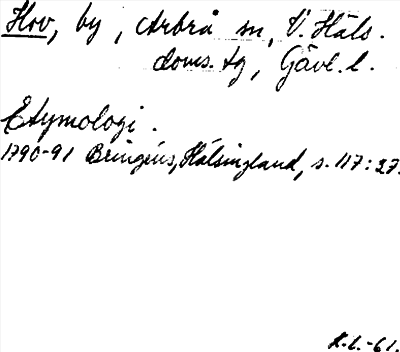 Hov, by, Arbrå sn, V. Häls.
doms. tg, Gävl. l.
Etymologi.
1790-91 Bringéus, Hälsingland, s. 117:27.
K.L.-61.